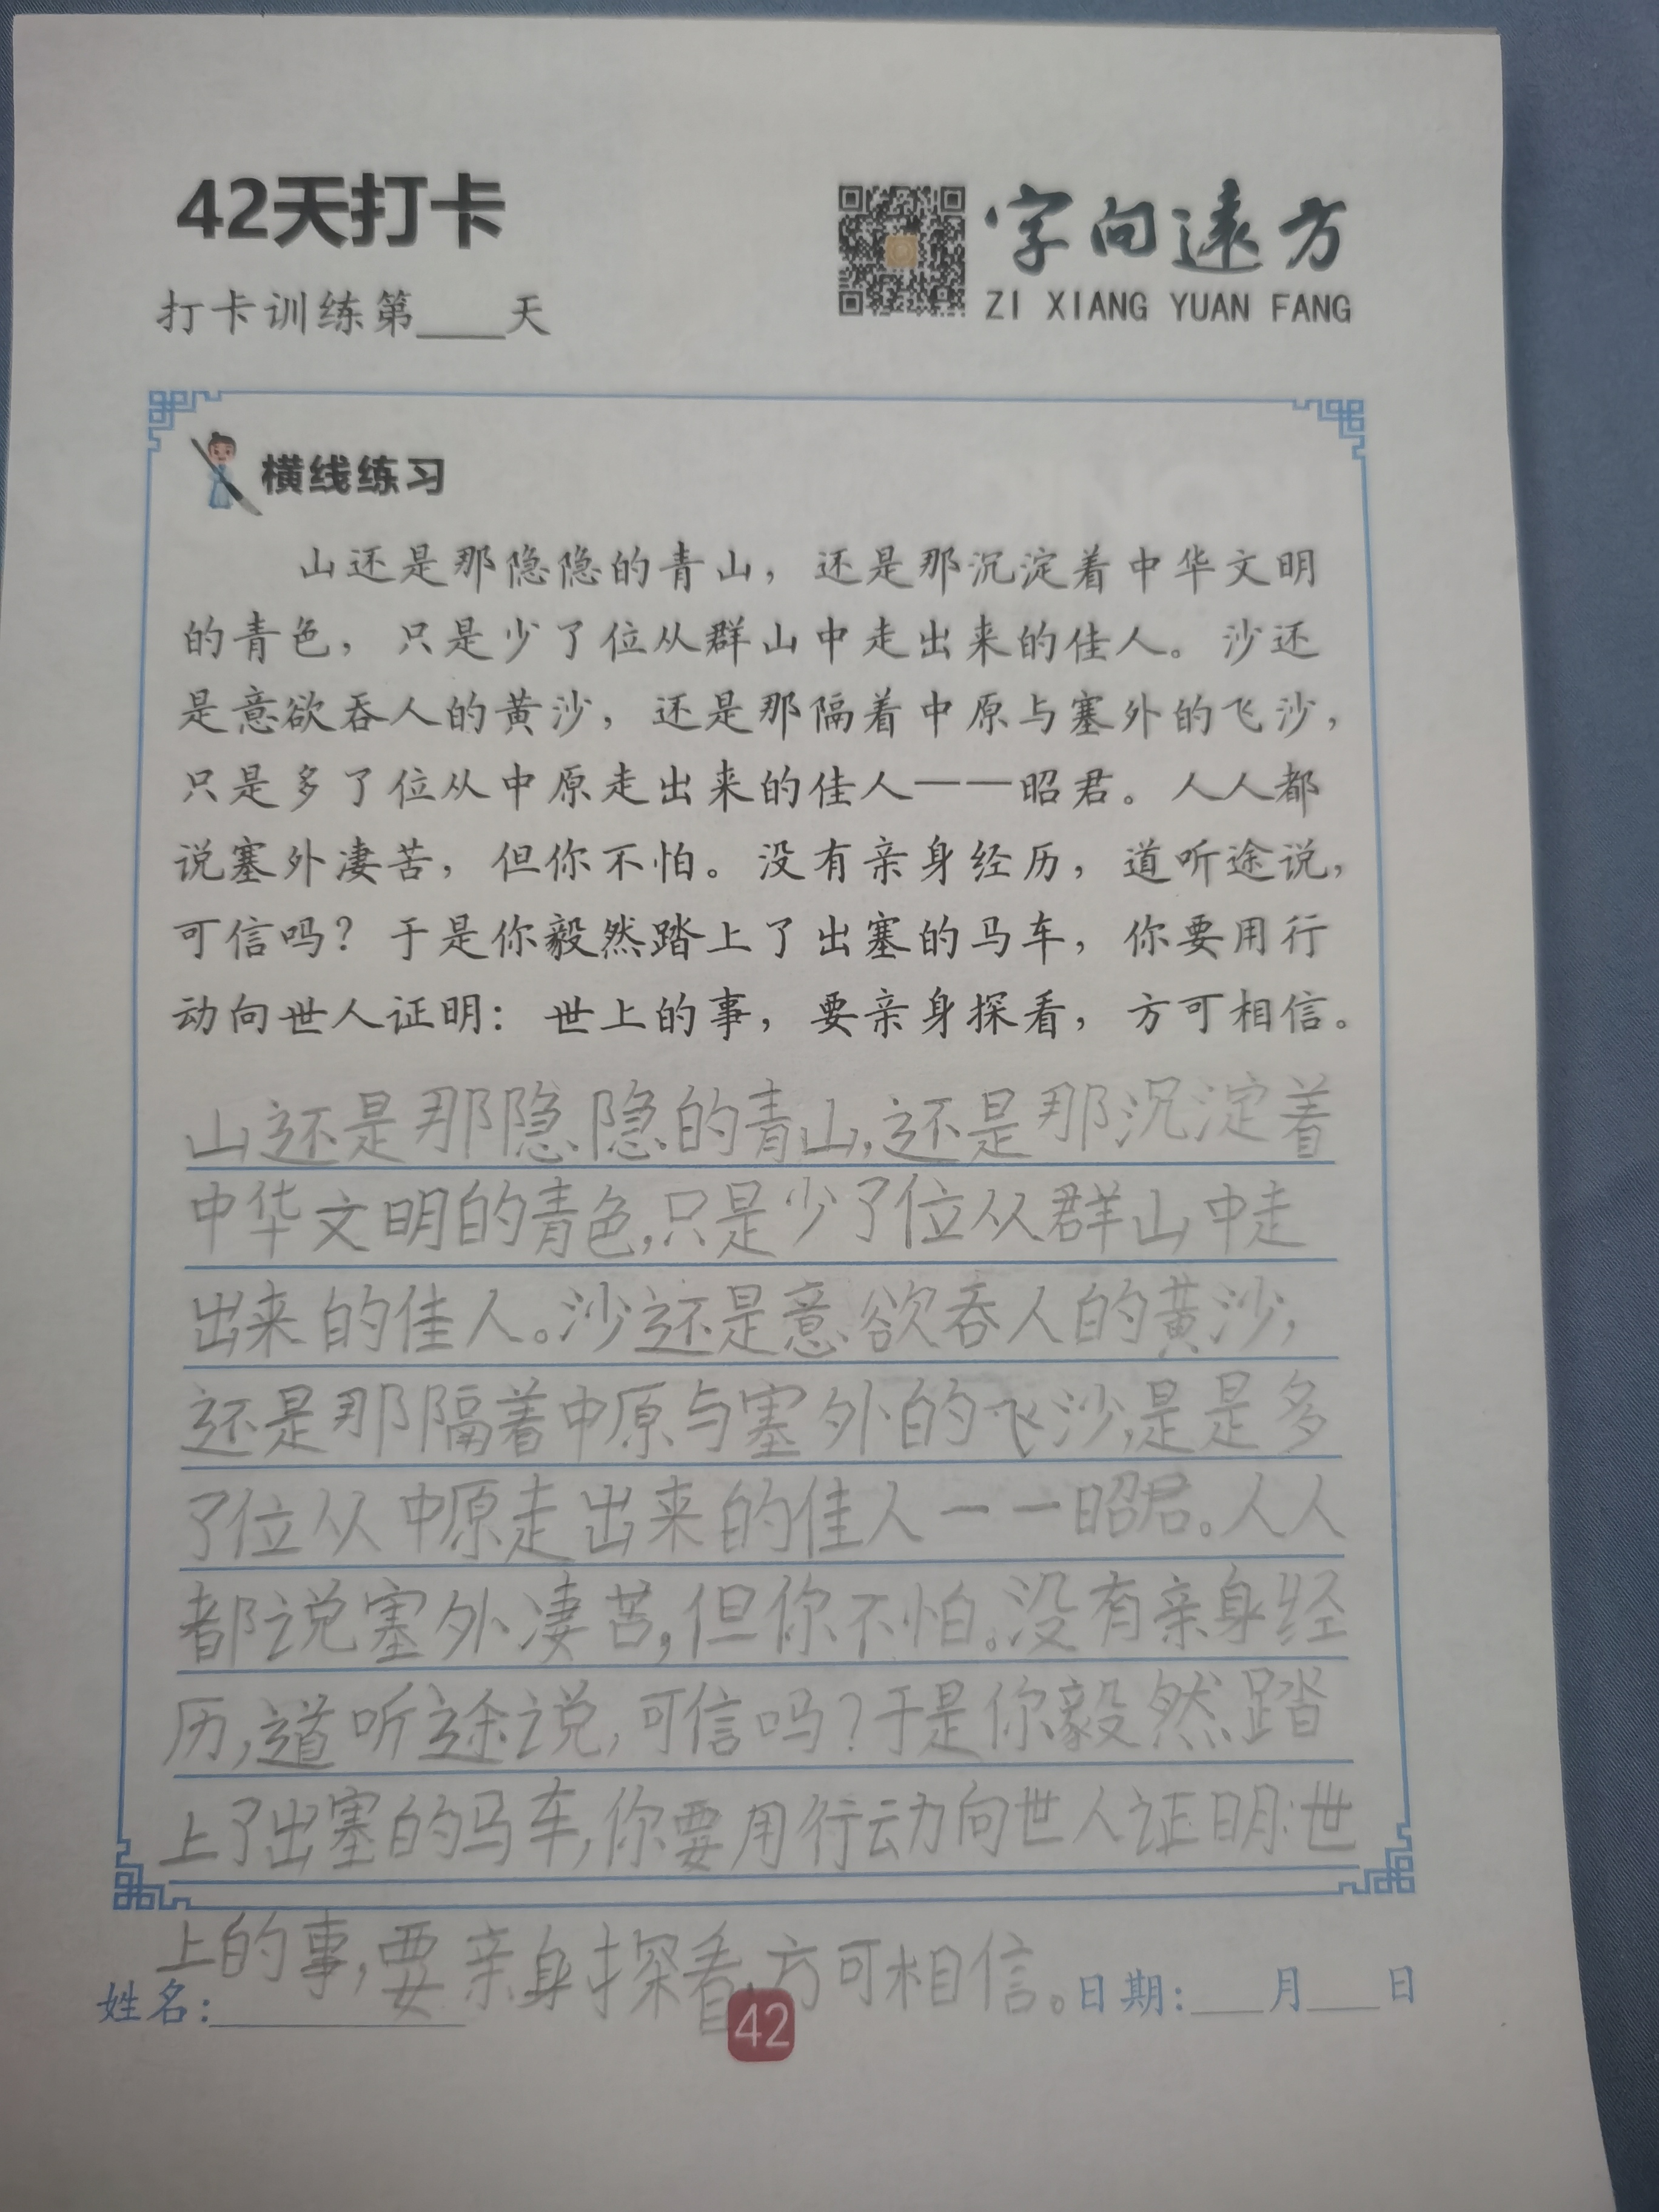 42天打卡
字向遠方
打卡训练第____天
ZI XIANG YUAN FANG
横线练习
山还是那隐隐的青山，还是那沉淀着中华文明
的青色，只是少了位从群山中走出来的佳人。沙还
是意欲吞人的黄沙，还是那隔着中原与塞外的飞沙，
只是多了位从中原走出来的佳人——昭君。人人都
说塞外凄苦，但你不怕。没有亲身经历，道听途说，
可信吗？于是你毅然踏上了出塞的马车，你要用行
动向世人证明：世上的事，要亲身探看，方可相信。
山还是那隐隐的青山,还是那沉淀着
中华文明的青色,只是少了位从群山中走
出来的佳人。沙还是意欲吞人的黄沙,
还是那隔着中原与塞外的飞沙,是是多
了位从中原走出来的佳人——昭君。人人
都说塞外凄苦,但你不怕。没有亲身经
历,道听途说,可信吗?于是你毅然踏
上了出塞的马车,你要用行动向世人证明:世
上的事,要亲身探看,方可相信。
姓名:__________
42
日期:___月___日